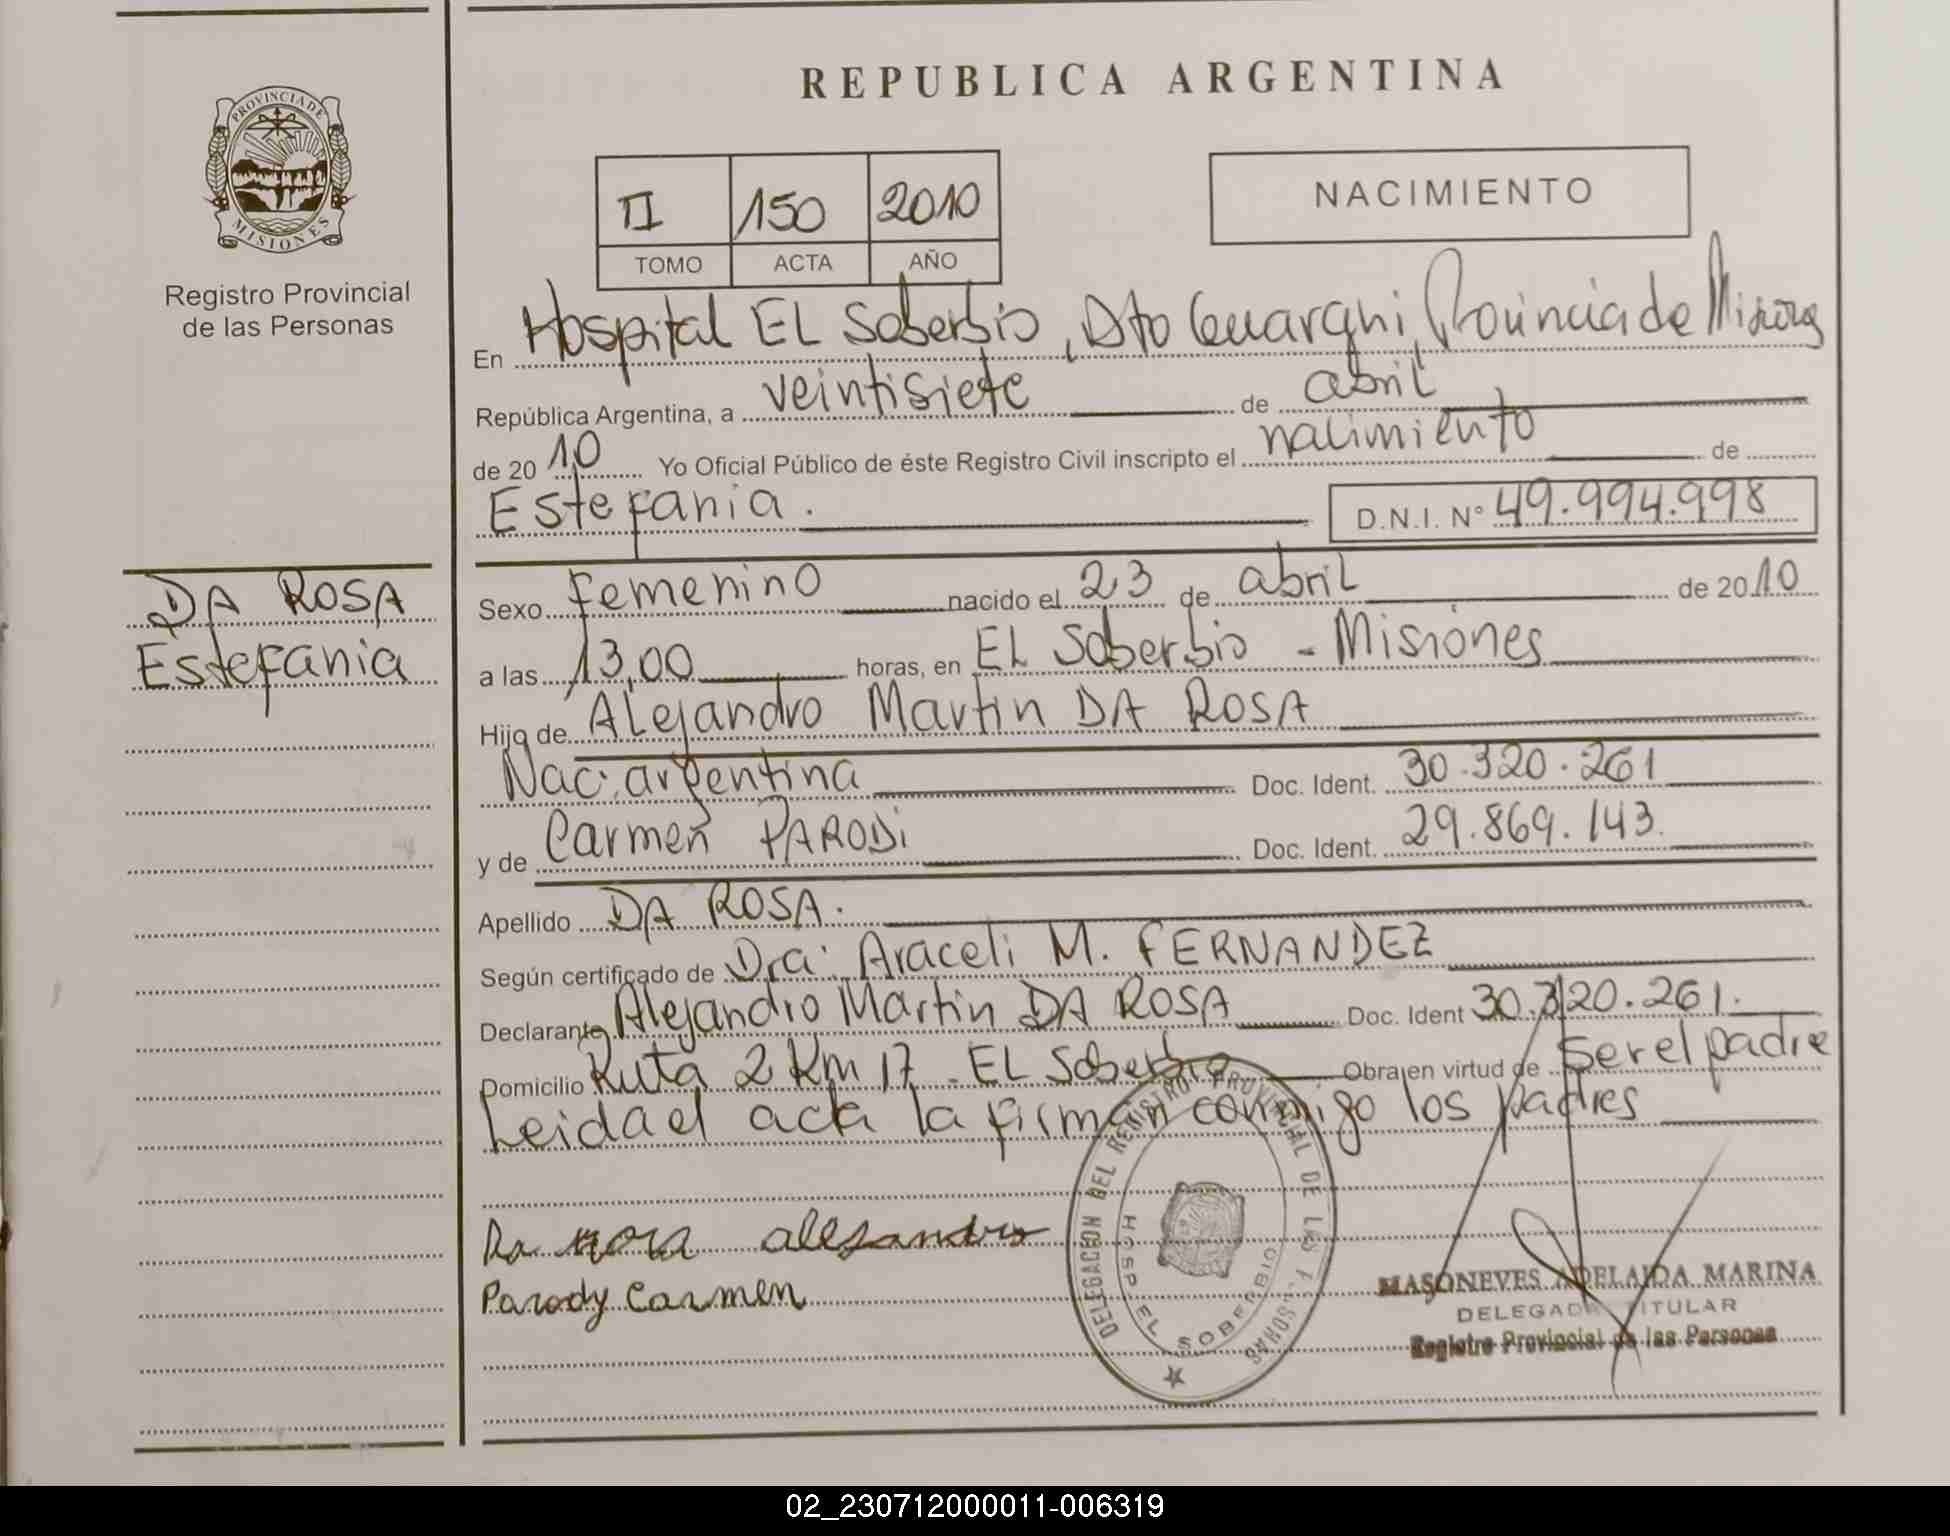 REPUBLICA ARGENTINA
PROVINCIA DE MISIONES
Registro Provincial
de las Personas
II 150 2010
TOMO ACTA AÑO
NACIMIENTO
En Hospital EL Soberbio, Dto Guarani, Provincia de Misiones
República Argentina, a veintisiete de abril
de 2010 Yo Oficial Público de éste Registro Civil inscripto el nacimiento de
Estefania. D.N.I. Nº 49.994.998
DA ROSA
Estefania
Sexo femenino nacido el 23 de abril de 2010
a las 13,00 horas, en EL Soberbio - Misiones
Hijo de Alejandro Martin DA ROSA
Nac: argentina Doc. Ident. 30.320.261
y de Carmen PARODi Doc. Ident. 29.869.143.
Apellido DA ROSA.
Según certificado de Dra: Araceli M. FERNANDEZ
Declarante Alejandro Martin DA ROSA Doc. Ident 30.320.261.
Domicilio Ruta 2 Km 17 - EL Soberbio Obra en virtud de ser el padre
Leida el acta la firman conmigo los padres
Da rosa alesandro
Parody Carmen
DELEGACION DEL REGISTRO PROVINCIAL DE LAS PERSONAS
HOSP EL SOBERBIO
MASONEVES ADELAIDA MARINA
DELEGADA TITULAR
Registro Provincial de las Personas
02_230712000011-006319